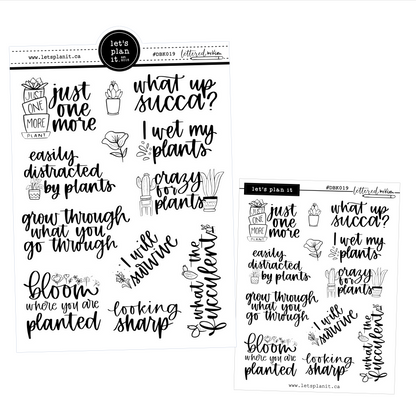 let's
plan
it.
www.letsplanit.ca
#DBK019
lettered
JUST
ONE
MORE
PLANT
just
one
more
what up
succa?
I wet my
plants
easily
distracted
by plants
crazy
for
plants
grow through
what you
go through
I will
survive
what the
fucculent
bloom
where you are
planted
looking
sharp
let's plan it
#DBK019
lettered
JUST
ONE
MORE
just
one
more
what up
succa?
I wet my
plants
easily
distracted
by plants
crazy
for
plants
grow through
what you
go through
I will
survive
what the
fucculent
bloom
where you are
planted
looking
sharp
www.letsplanit.ca